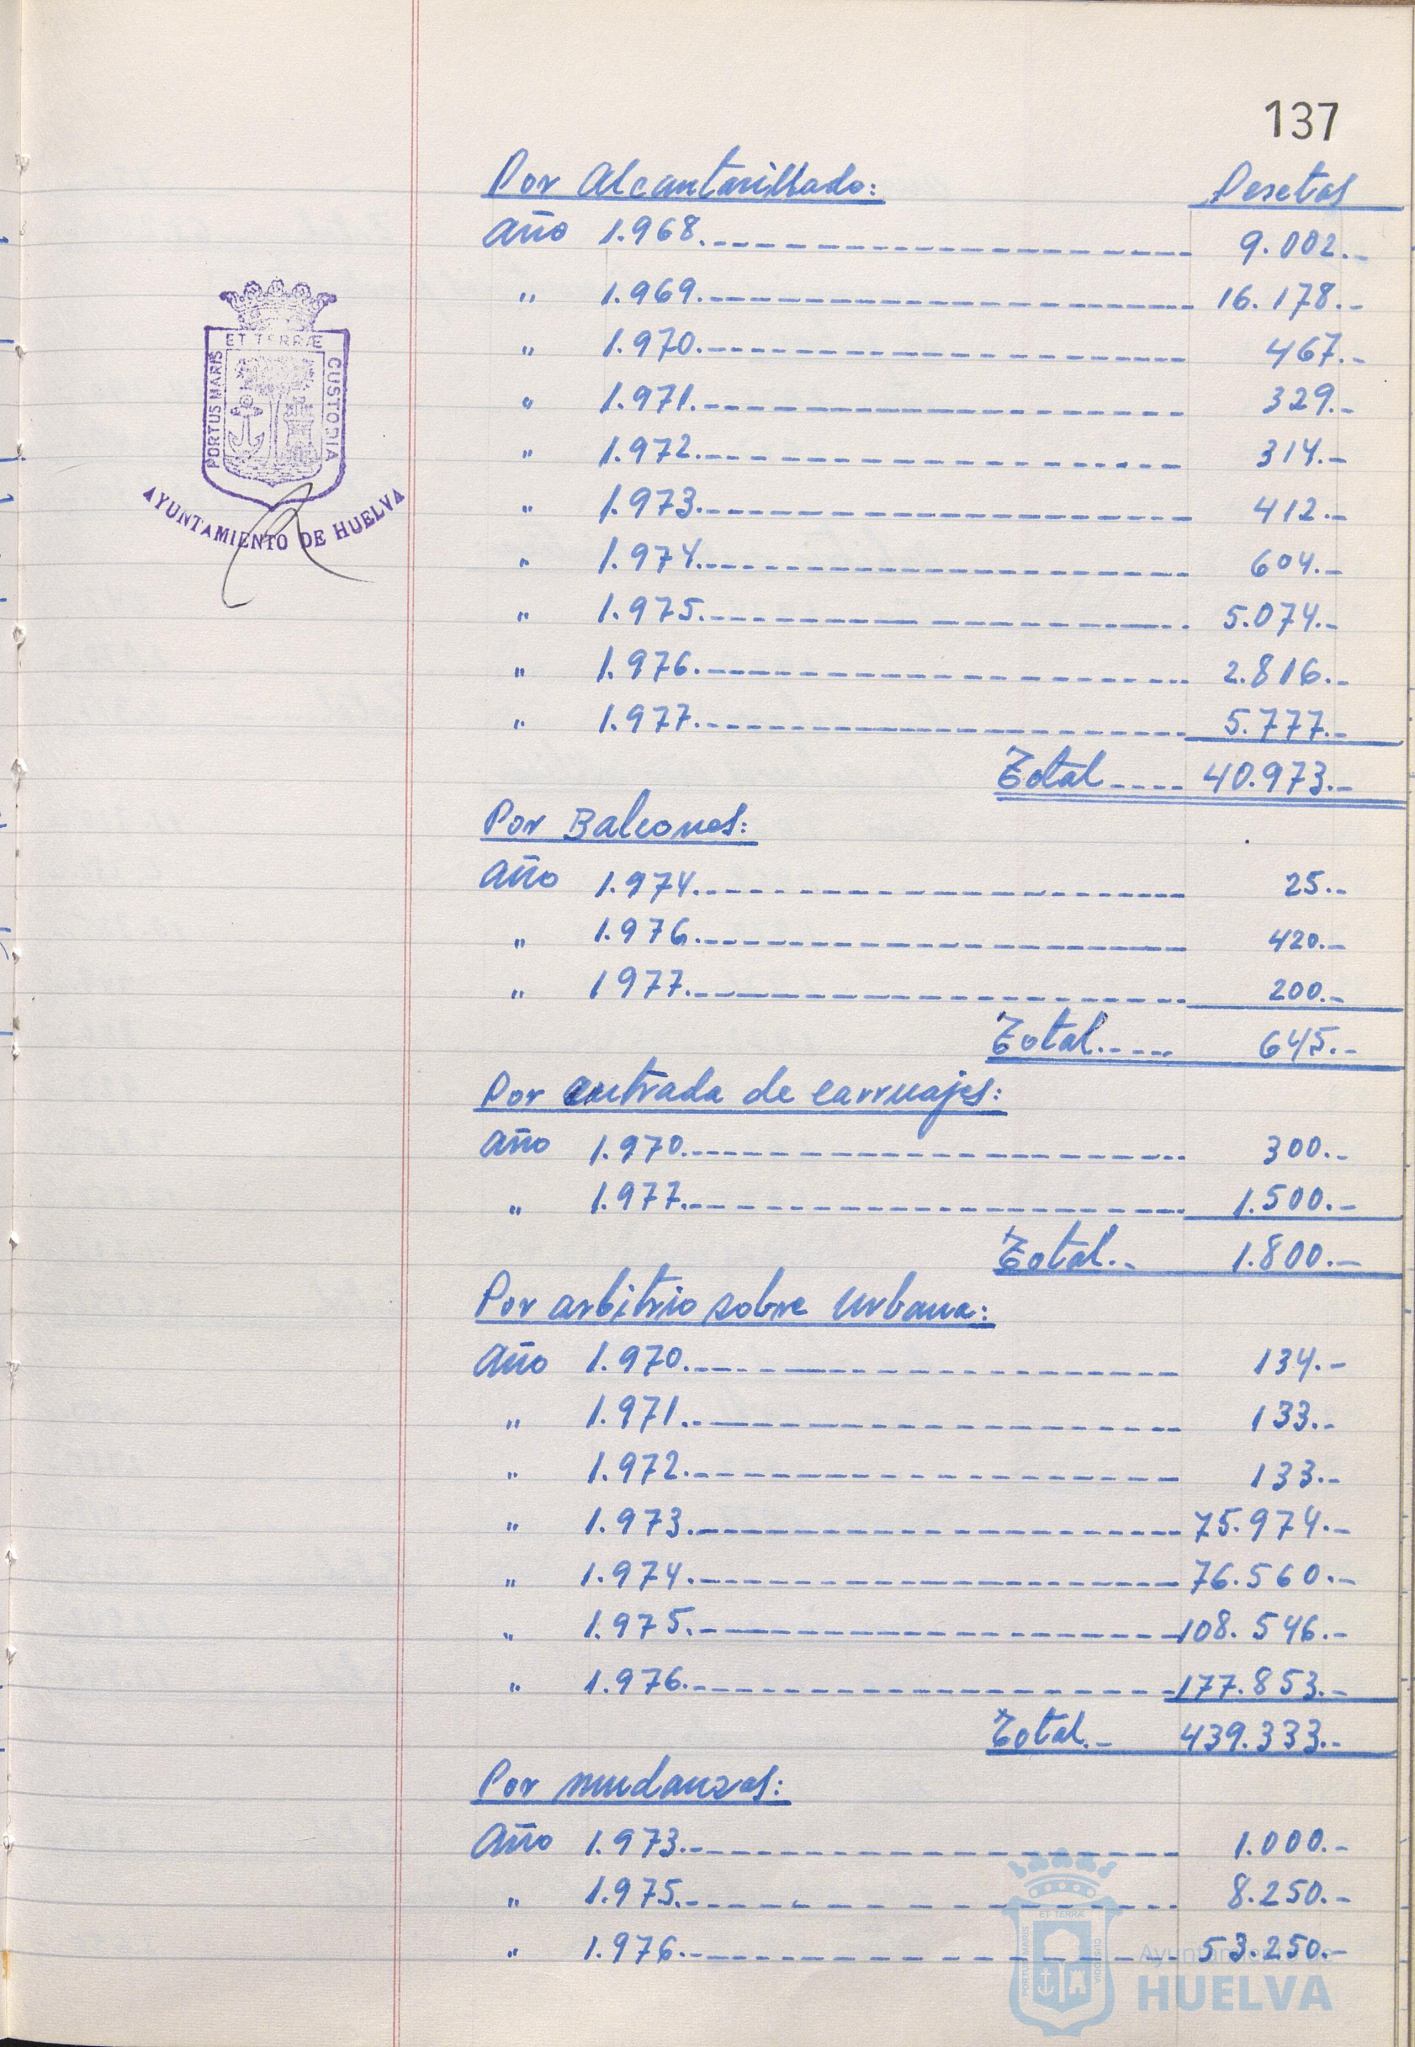 137
Por Alcantarillado: Pesetas
Año 1.968. 9.002.-
" 1.969. 16.178.-
" 1.970. 467.-
" 1.971. 329.-
" 1.972. 314.-
" 1.973. 412.-
" 1.974. 604.-
" 1.975. 5.074.-
" 1.976. 2.816.-
" 1.977. 5.777.-
Total 40.973.-
Por Balcones:
Año 1.974. 25.-
" 1.976. 420.-
" 1977. 200.-
Total 645.-
Por entrada de carruajes:
Año 1.970. 300.-
" 1.977. 1.500.-
Total.- 1.800.-
Por arbitrio sobre Urbana:
Año 1.970. 134.-
" 1.971. 133.-
" 1.972. 133.-
" 1.973. 75.974.-
" 1.974. 76.560.-
" 1.975. 108.546.-
" 1.976. 177.853.-
Total.- 439.333.-
Por mudanzas:
Año 1.973.- 1.000.-
" 1.975. 8.250.-
" 1.976.- 53.250.-
PORTUS MARIS ET TERRÆ CUSTODIA
AYUNTAMIENTO DE HUELVA
PORTUS MARIS ET TERRÆ CUSTODIA
Ayuntamiento de
HUELVA